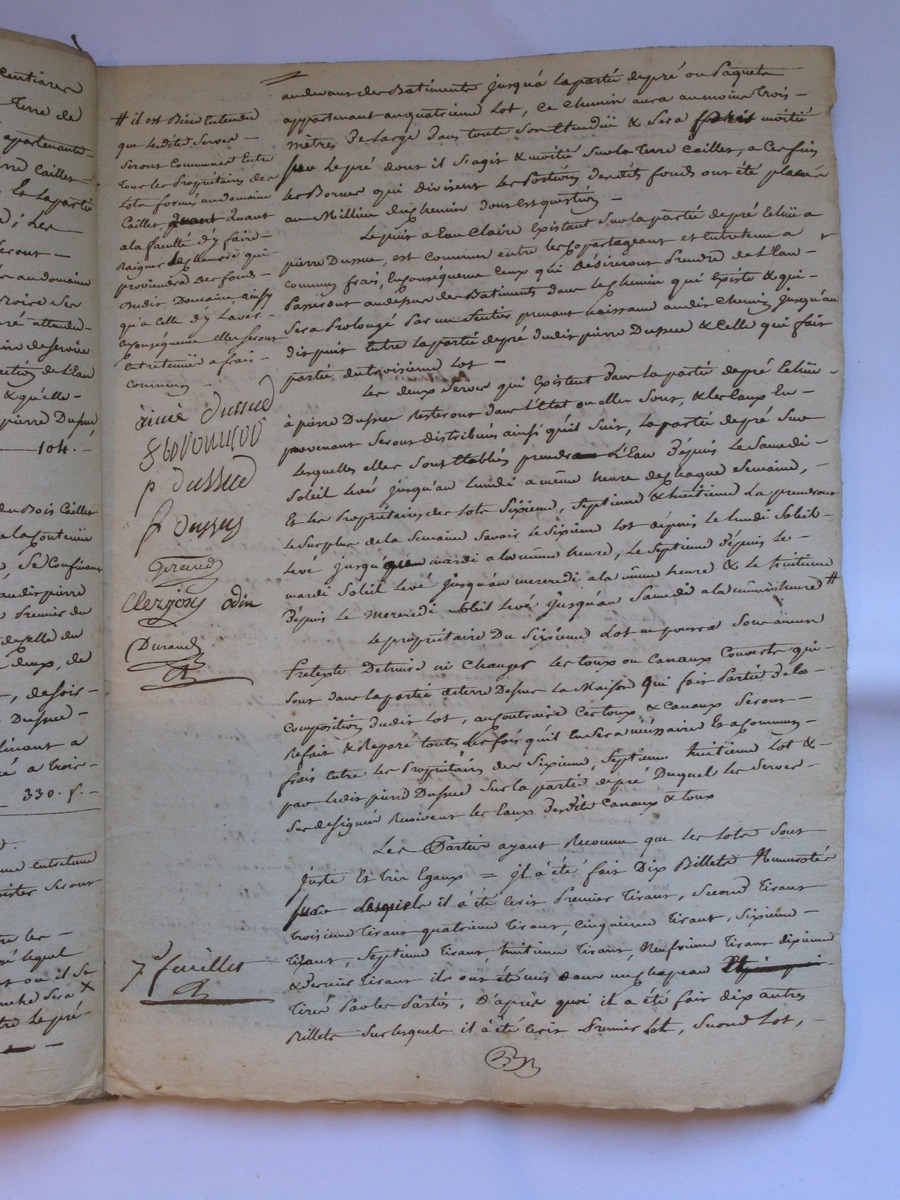 centiares
Terre de
appartenante
rre Caillet
Et la partie
d; Les
Seront
au domaine
ré attendu
ire de Service
ction de l'Eau
& qu'elle
pierre Dussud
104. -
du Bois Caillet
de la Contenüe
, Se Confinant
audit pierre
Premier du
de celle du
deux, de
, de soir
Dussud
clinant a
é a Trois
330. f. -
# il est Bien Entendu
que lesdites Serves
Seront Communes Entre
tous les Propriétaires des
Lots formés au domaine
Caillet, Quant
a la faculté d'y faire
Naiger les chenvre qui
proviendra des fonds
dudit Domaine, ainsy
qu'a Celle d'y Laver
En Conséquence elles seront
Entretenüe a frais
Communs -
Dussud
P Dussud
P Dussus
Giraud
Clerjon Odin
Durand
7e feuillet
au devant des Batiments jusqu'a la partie de pré ou Paquete
appartenant au quatrieme Lot, Ce Chemin aura au moins trois
mètres de Large dans toute Son Etendüe & Sera pris moitié
Sur Le pré dont il S'agit & moitié Sur la Terre Caillet, a Ces fins
les Bornes qui divisent les Portions desdits fonds ont été placés
au Millieu du Chemin dont Est question -
Le puis a Eau Claire Existant Sur la partie de pré Echüe a
pierre Dussud, est Commun entre les Copartageant et Entretenu a
Communs frais, En Conséquence Ceux qui désireront Prendre de L'Eau
Passeront au dessus des Batiments dans le Chemin qui Existe & qui
Sera Prolongé Par un Sentier prenant Naissance audit Chemin jusqu'au
dit puit Entre La partie de pré dudit pierre Dussud & Celle qui fait
partie du troisieme Lot -
Les deux Serves qui Existent dans la partie de pré Echüe
à pierre Dussud Resteront dans L'Etat ou elles Sont, & les Eaux En
provenant Seront distribuées ainsi qu'il Suit, La partie de pré Sur
Lesquelles elles Sont Etablies prendra L'Eau Depuis le Samedi
Soleil Levé jusqu'au Lundi a même heure de chaque Semaine,
Et les Propriétaires des Lots Sixieme, Septieme & huitieme La prendront
le Surplus de la Semaine Savoir le Sixieme Lot depuis le lundi Soleil
levé jusqu'au mardi a la même heure, le Septieme Depuis le
mardi Soleil Levé jusqu'au mercredi a la même heure & le huitieme
Depuis le Mercredi Soleil Levé jusqu'au Samedi a la même heure #
Le propriétaire Du Sixieme Lot ne pourra Sous aucun
Pretexte Detruire ni Changer les toux ou Canaux Couverts qui
Sont dans la partie de terre Dessus La Maison Qui fait Partie de la
Composition dudit Lot, au Contraire Ces toux & Canaux Seront
Refait & Reparé toutes les fois qu'il En Sera nécessaire Et a Communs
frais Entre les Propriétaires des Sixieme, Septieme huitieme Lot &
par Ledit pierre Dussud Sur la partie de pré Duquel les Serves
Sus designées Reçoivent les Eaux desdits Canaux & toux
Les Parties ayant Reconnu que les Lots Sont
juste Et Très Egaux = il a été fait Dix Billets Numerotés
Sur Lesquels il a été Ecrit Premier tirant, Second tirant
troisieme tirant quatrieme tirant, Cinquieme tirant, Sixieme
tirant, Septieme tirant, huitieme tirant, Neufvieme tirant dixieme
& dernier tirant ils ont été mis dans un Chapeau
tiré Par les Parties, D'après quoi il a été fait dix autres
Billets Sur lesquels il a été Ecrit Premier Lot, Second Lot, -